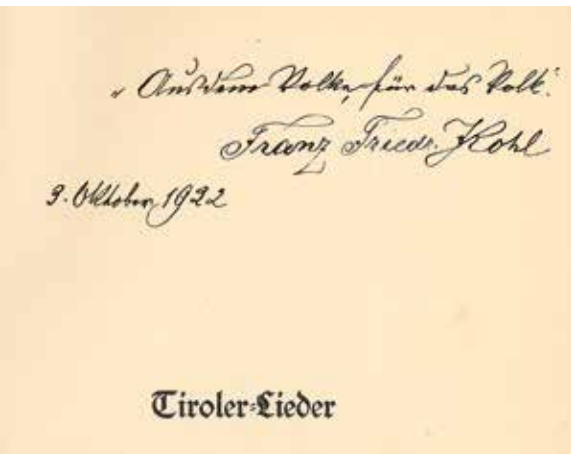 „Aus dem Volke, für das Volk".
Franz Friedr. Kohl
3. Oktober 1922
Tiroler-Lieder